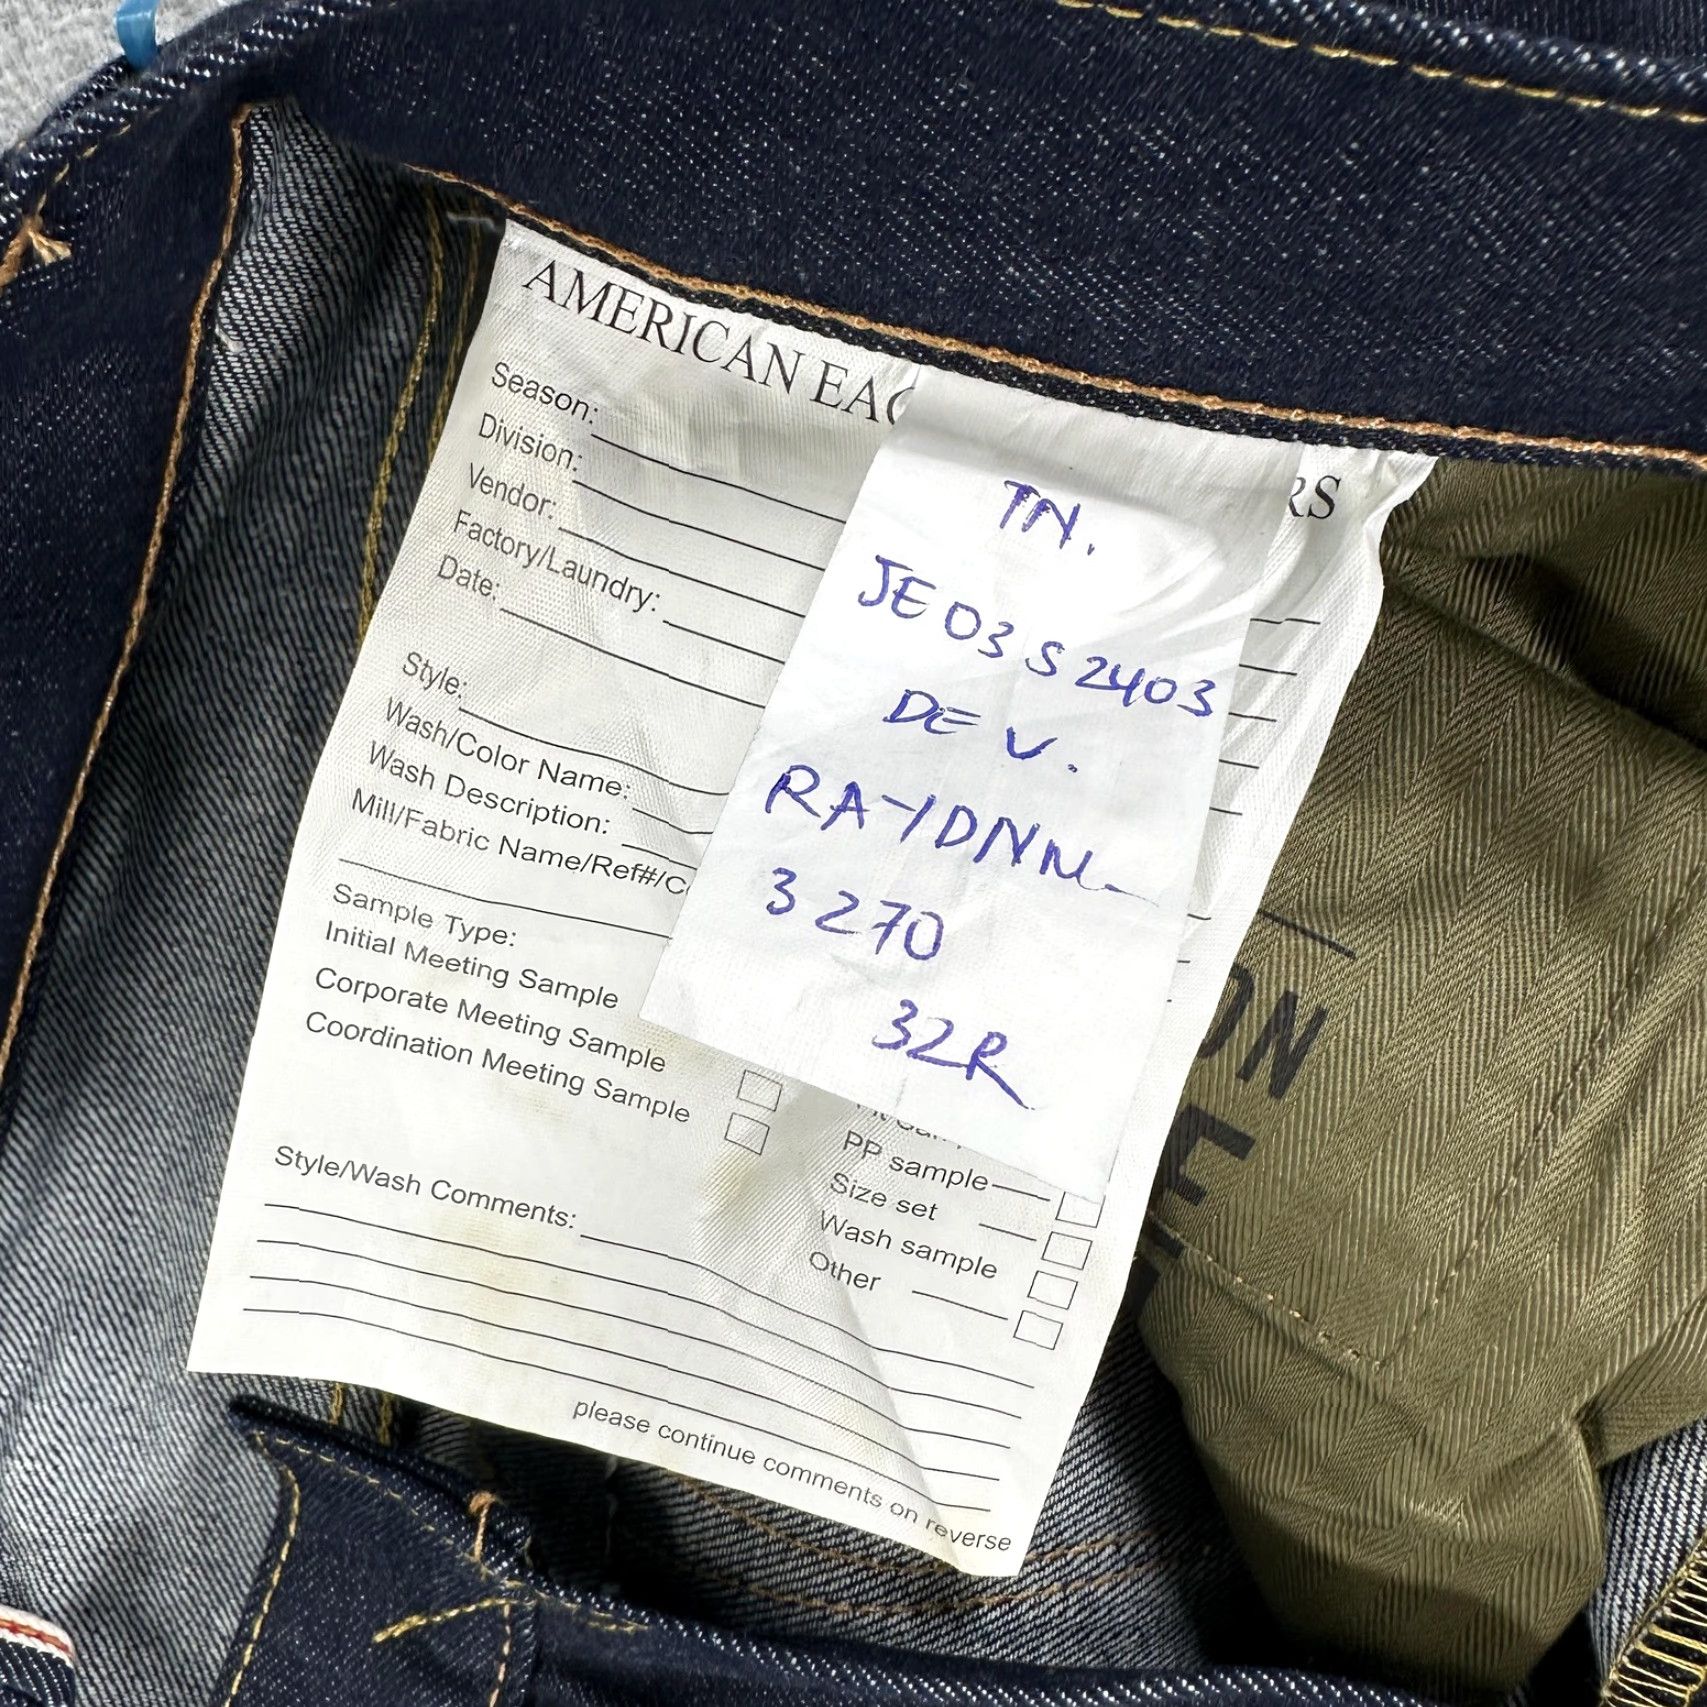 AMERICAN EAG RS
Season:
Division:
Vendor:
Factory/Laundry:
Date:
Style:
Wash/Color Name:
Wash Description:
Mill/Fabric Name/Ref#/C
Sample Type:
Initial Meeting Sample
Corporate Meeting Sample
Coordination Meeting Sample
TN.
JE03S2403
DEV.
RA-1DNM-
3270
32R
PP sample
Size set
Wash sample
Other
Style/Wash Comments:
please continue comments on reverse
ON